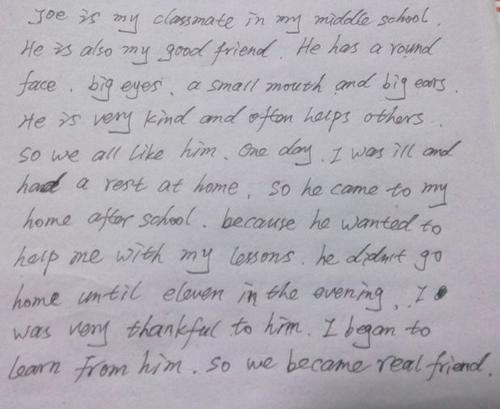 Joe is my classmate in my middle school.
He is also my good friend. He has a round
face. big eyes. a small mouth and big ears.
He is very kind and often helps others.
So we all like him. One day, I was ill and
had a rest at home, so he came to my
home after school. because he wanted to
help me with my lessons. he didn't go
home until eleven in the evening, I
was very thankful to him. I began to
learn from him. So we became real friend.